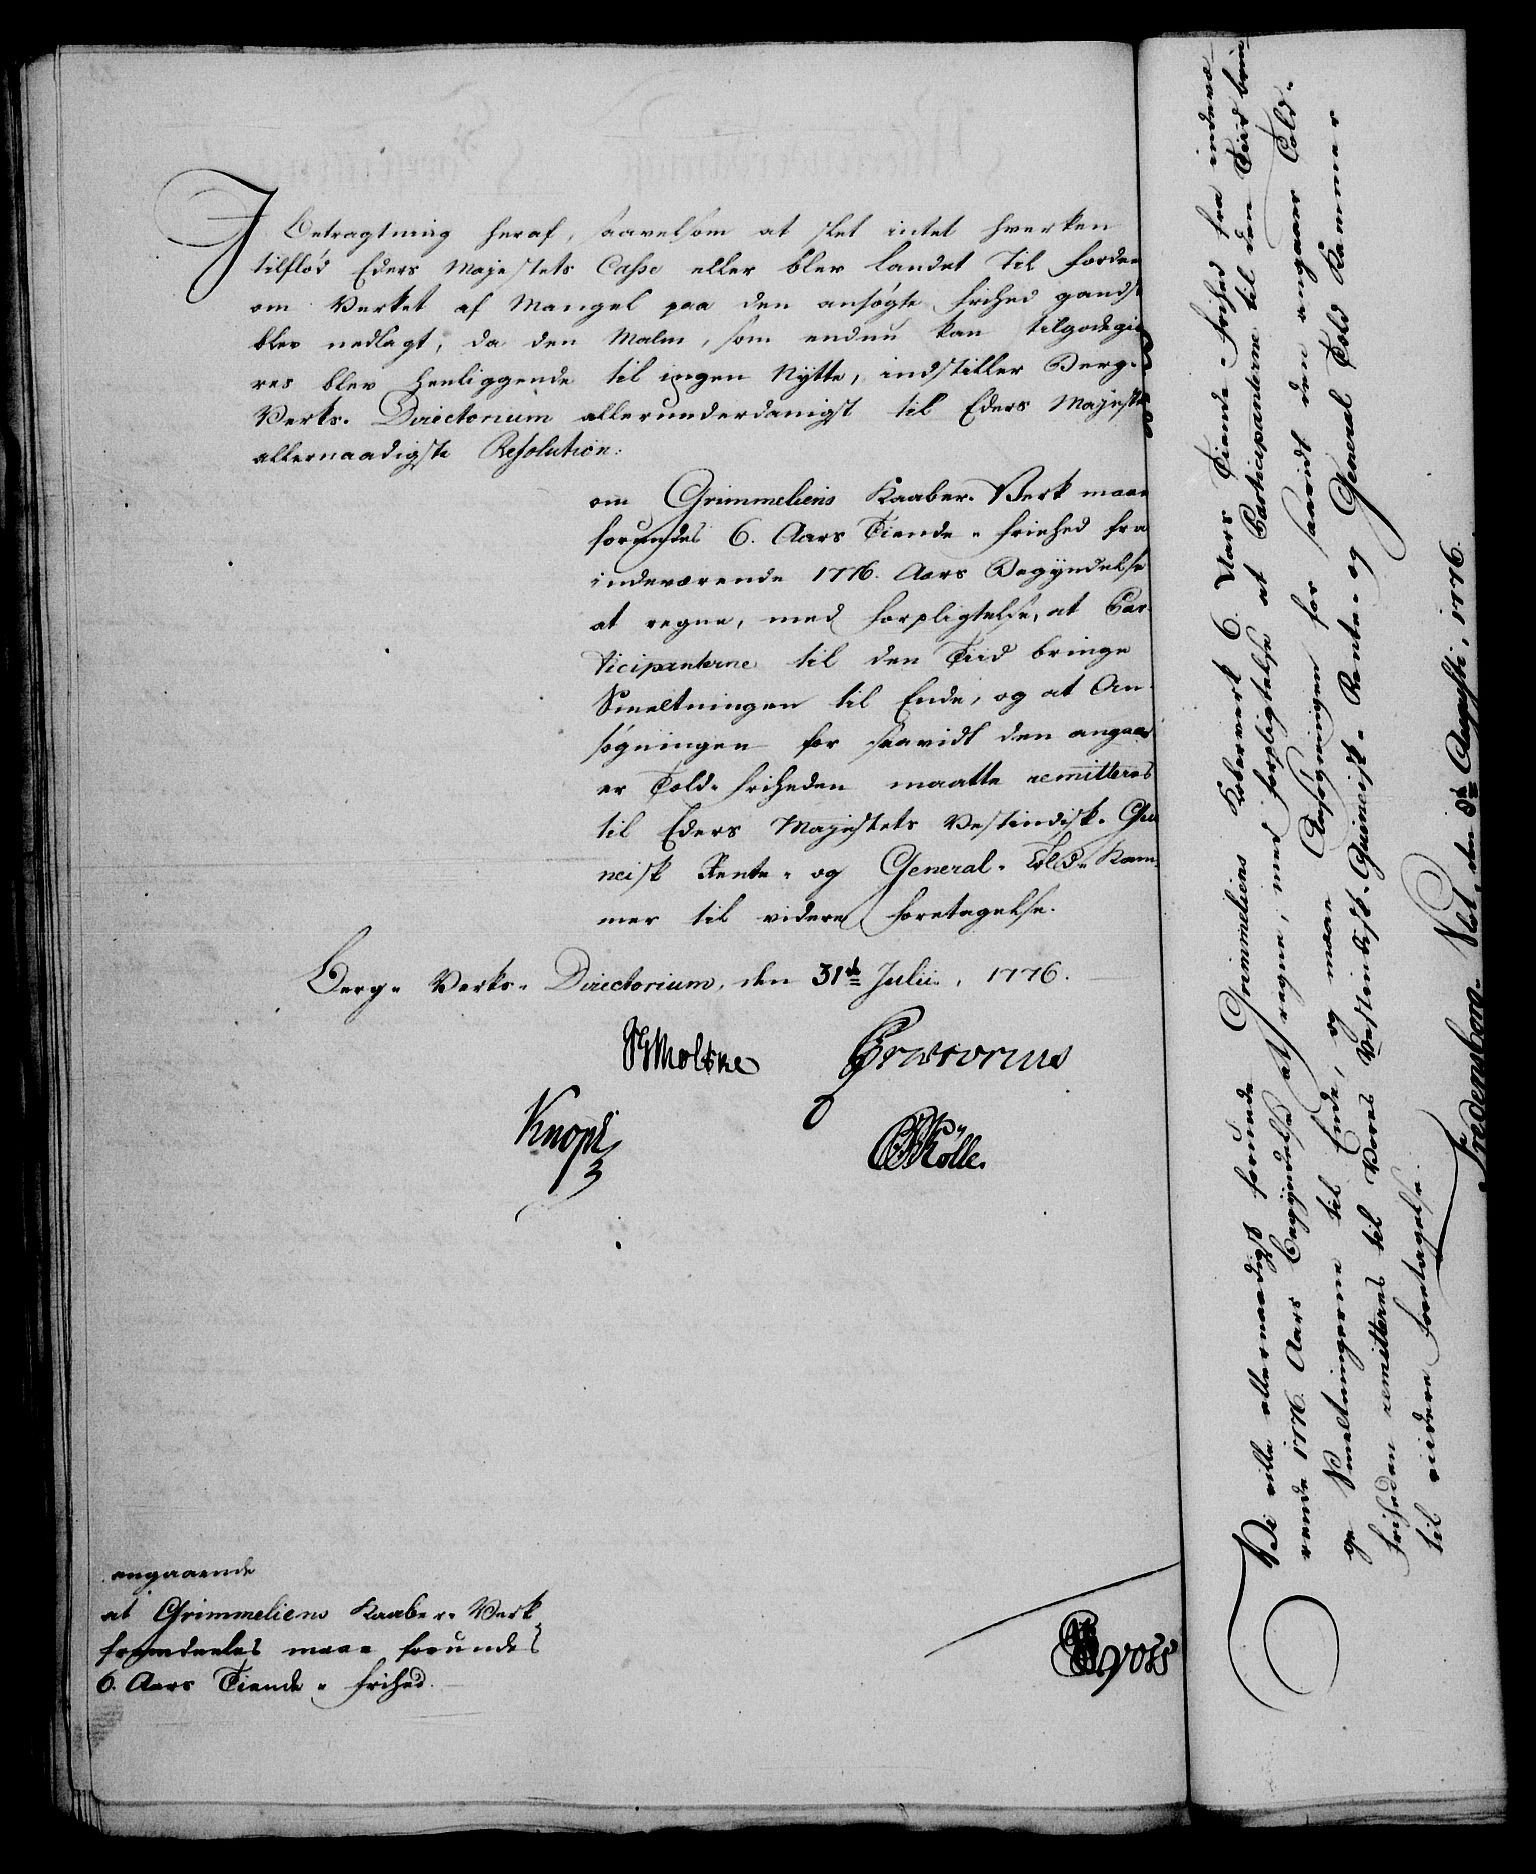 I Betragtning heraf, saavelsom at slet intet hverken
tilflød Eders Majestets Casse eller blev landet til fordeel
om Verket af Mangel paa den ansøgte frihed gandske
blev nedlagt, da den Malm, som endnu kan tilgodegiø-
res blev henliggende til ingen Nytte, indstiller Berg-
Verks-Directorium allerunderdanigst til Eders Majestets
allernaadigste Resolution:
om Grimmeliens Kaaber-Verk maae
forundes 6. Aars Tiende-friehed fra
indeværende 1776. Aars Begyndelse
at regne, med forpligtelse, at Par-
ticipanterne til den Tiid bringe
Smeltningen til Ende, og at An-
søgningen for saavidt den angaa-
er Told-friheden maatte remitteres
til Eders Majestets Vestindisk-Gui-
neisk Rente- og General-Told-Kam-
mer til videre foretagelse.
Berg-Verks-Directorium, den 31te Julii, 1776.
Moltke Prætorius
Knoph
Kölle.
angaaende
at Grimmeliens Kaaber-Verk
fremdeeles maae forundes
6. Aars Tiende-frihed.
Vi ville allernaadigst forunde Grimmeliens Kobberverk 6. Aars Tiende-frihed fra indevæ-
rende 1776. Aars Begyndelse at regne, med forpligtelse at Participanterne til den Tiid brin-
ge Smeltningerne til Ende, og maae Ansøgningen for saavidt den angaaer Told-
friheden remitteres til Vores Vestindisk-Guineisk-Rente- og General Told Kammer
til videre foretagelse.
Fredensborg Slot, den 8de Augusti, 1776.